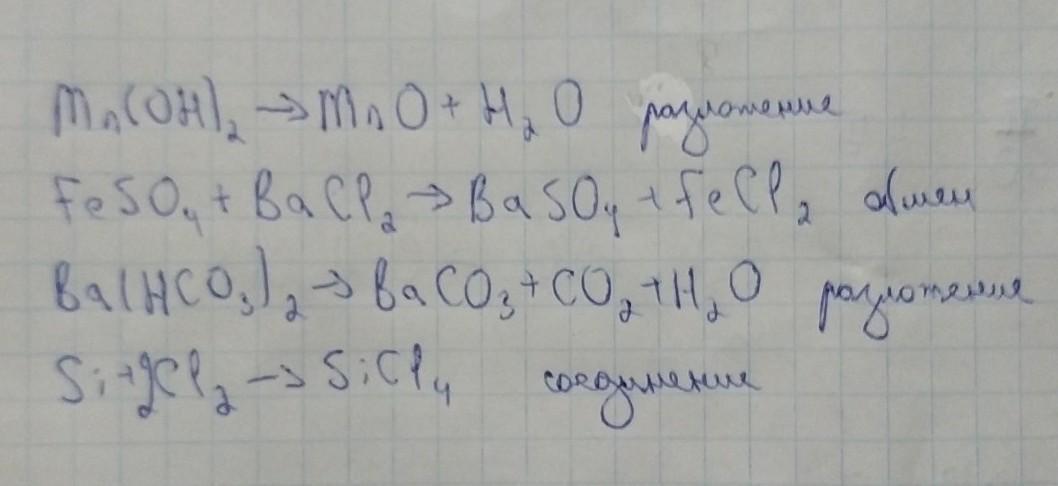 Mn(OH)₂ → MnO + H₂O разложение
FeSO₄ + BaCl₂ → BaSO₄ + FeCl₂ обмен
Ba(HCO₃)₂ → BaCO₃ + CO₂ + H₂O разложение
Si + 2Cl₂ → SiCl₄ соединение